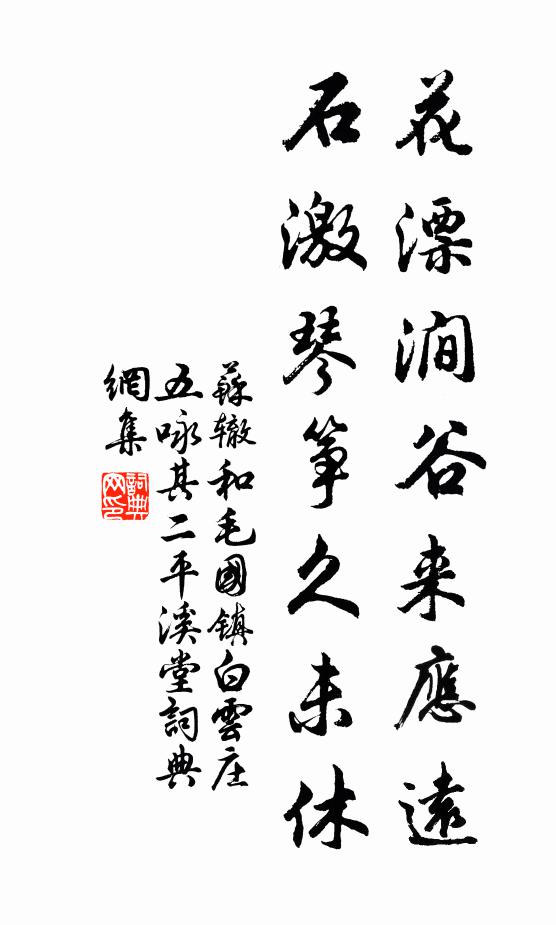 花漂澗谷来應遠
石激琴筝久未休
蘇辙和毛國镇白雲庄
五咏其二平溪堂詞典
網集
詞典
网印